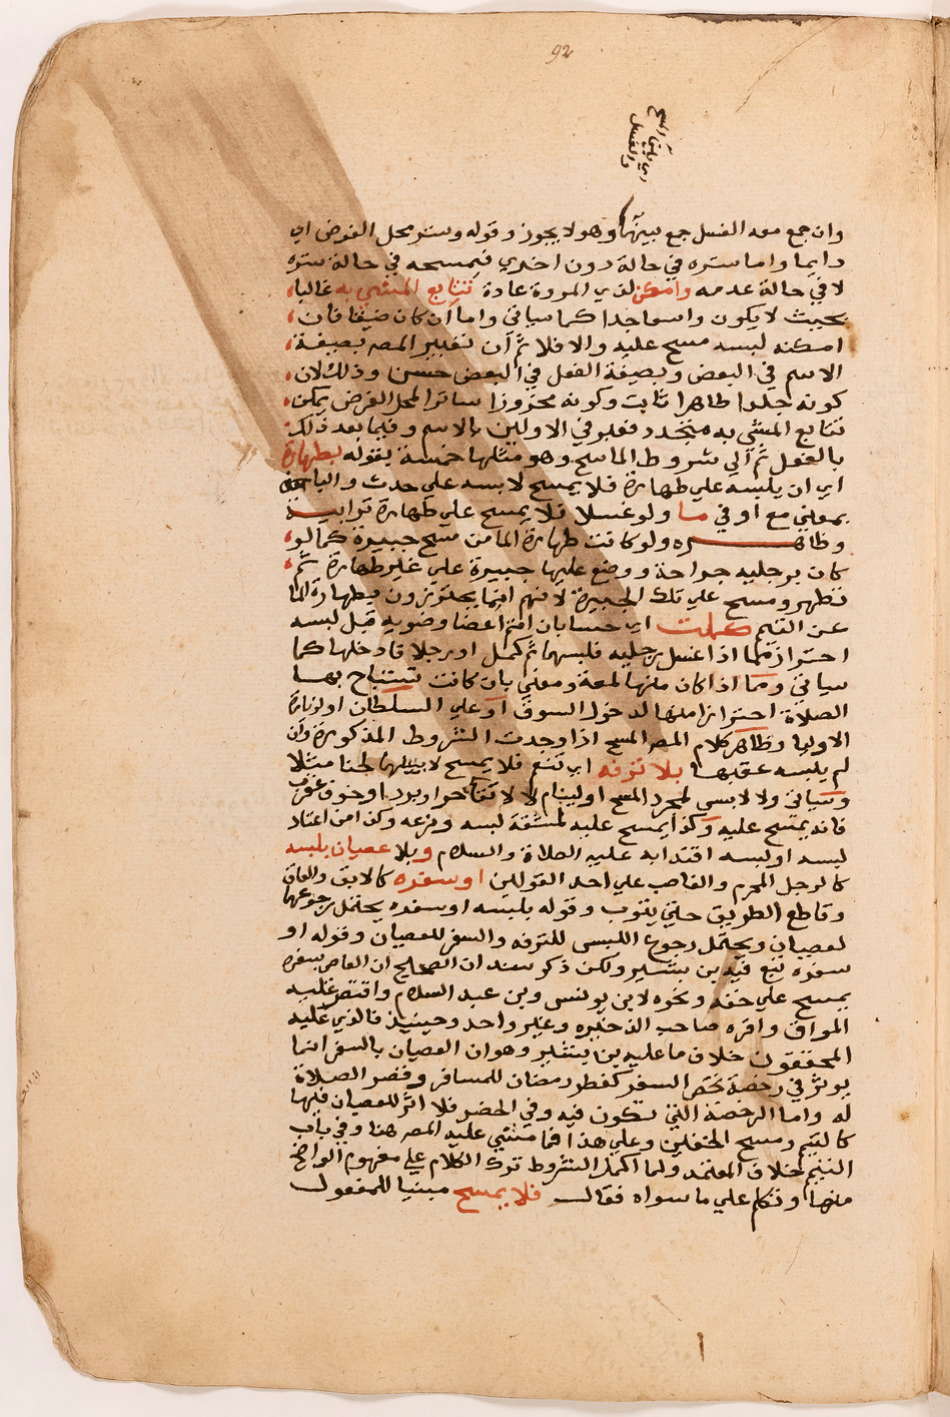 92
اي بين المسح
والغسل
وان جمع معه الغسل جمع بينهما وهو لا يجوز وقوله وستر محل الفرض اي
دايما واما ستره في حالة دون اخري فيمسحه في حالة ستره
لا في حالة عدمه وامكن لذي المروة عادة تتابع المشي به غالبا،
بحيث لا يكون واسعا جدا كما سياتي واما ان كان ضيقا فان،
امكنه لبسه مسح عليه والا فلا ثم ان تعبير المصـ بصيغة،
الاسم في البعض وبصيغة الفعل في البعض حسن وذلك لان،
كونه جلدا طاهرا ثابت وكونه مخروزا ساترا لمحل الفرض يمكن،
تتابع المشي به متجدد فعبر في الاولين بالاسم وفيما بعد ذلك
بالفعل ثم الي شروط الماسح وهو مثلها خمسة بقوله بطهارة
اي ان يلبسه علي طهارة فلا يمسح لابسه علي حدث والبا
بمعني مع او في ما ولو غسلا فلا يمسح علي طهارة ترابية
وظاهـــره ولو كانت طهارة الما من مسح جبيرة كما لو،
كان برجليه جراحة ووضع عليها جبيرة علي غير طهارة ثم،
تطهر ومسح علي تلك الجبيرة لانهم انما يحترزون بطهارة الما
عن التيمم كملت اي حسا بان اتم اعضا وضويه قبل لبسه
احترازا مما اذا غسل رجليه فلبسهما ثم كمل او رجلا فادخلها كما
سياتي ومما اذا كان منها لمعة ومعني بان كانت تستباح بهـا
الصلاة احترازا منها لدخول السوق او علي السلطان او لزيارة
الاوليا وظاهر كلام المصـ المسح اذا وجدت الشروط المذكورة وان
لم يلبسه عقبها بلا ترفه اي تنعم فلا يمسح لابسه لحنا مثلا
وسياتي ولا لابس لمجرد المسح او لينام لا لاتقا حر او برد او خوف عقرب
فانه يمسح عليه وكذا يمسح عليه لمشقة لبسه ونزعه وكذا من اعتاد
لبسه او لبسه اقتدا به عليه الصلاة والسلام وبلا عصيان بلبسه
كالرجل المحرم والغاصب علي احد القولين او سفره كالابق والعاق
وقاطع الطريق حتي يتوب وقوله بلبسه او سفره يحتمل رجوعهما
لعصيان ويحتمل رجوع اللبس للترفه والسفر للعصيان وقوله او
سفره تبع فيه بن بشير ولكن ذكر سند ان الصحيح ان العاصي بسفره
يمسح علي خفه ونحوه لابن يونس وبن عبد السلام واقتصر عليه
المواق واقره صاحب الذخيره وغير واحد وحينيذ فالذي عليه
المحققون خلاف ما عليه بن بشير وهو ان العصيان بالسفر انما
يوثر في رخصة تخص السفر كفطر رمضان للمسافر وقصر الصلاة
له واما الرخصة التي تكون فيه وفي الحضر فلا اثر للعصيان فيها
كالتيمم ومسح الخفين وعلي هذا فما مشي عليه المصـ هنا وفي باب
التيمم خلاف المعتمد ولما اكمل الشروط ترك الكلام علي مفهوم الواضح
منها وتكلم علي ما سواه فقال فلا يمسح مبنيا للمفعول